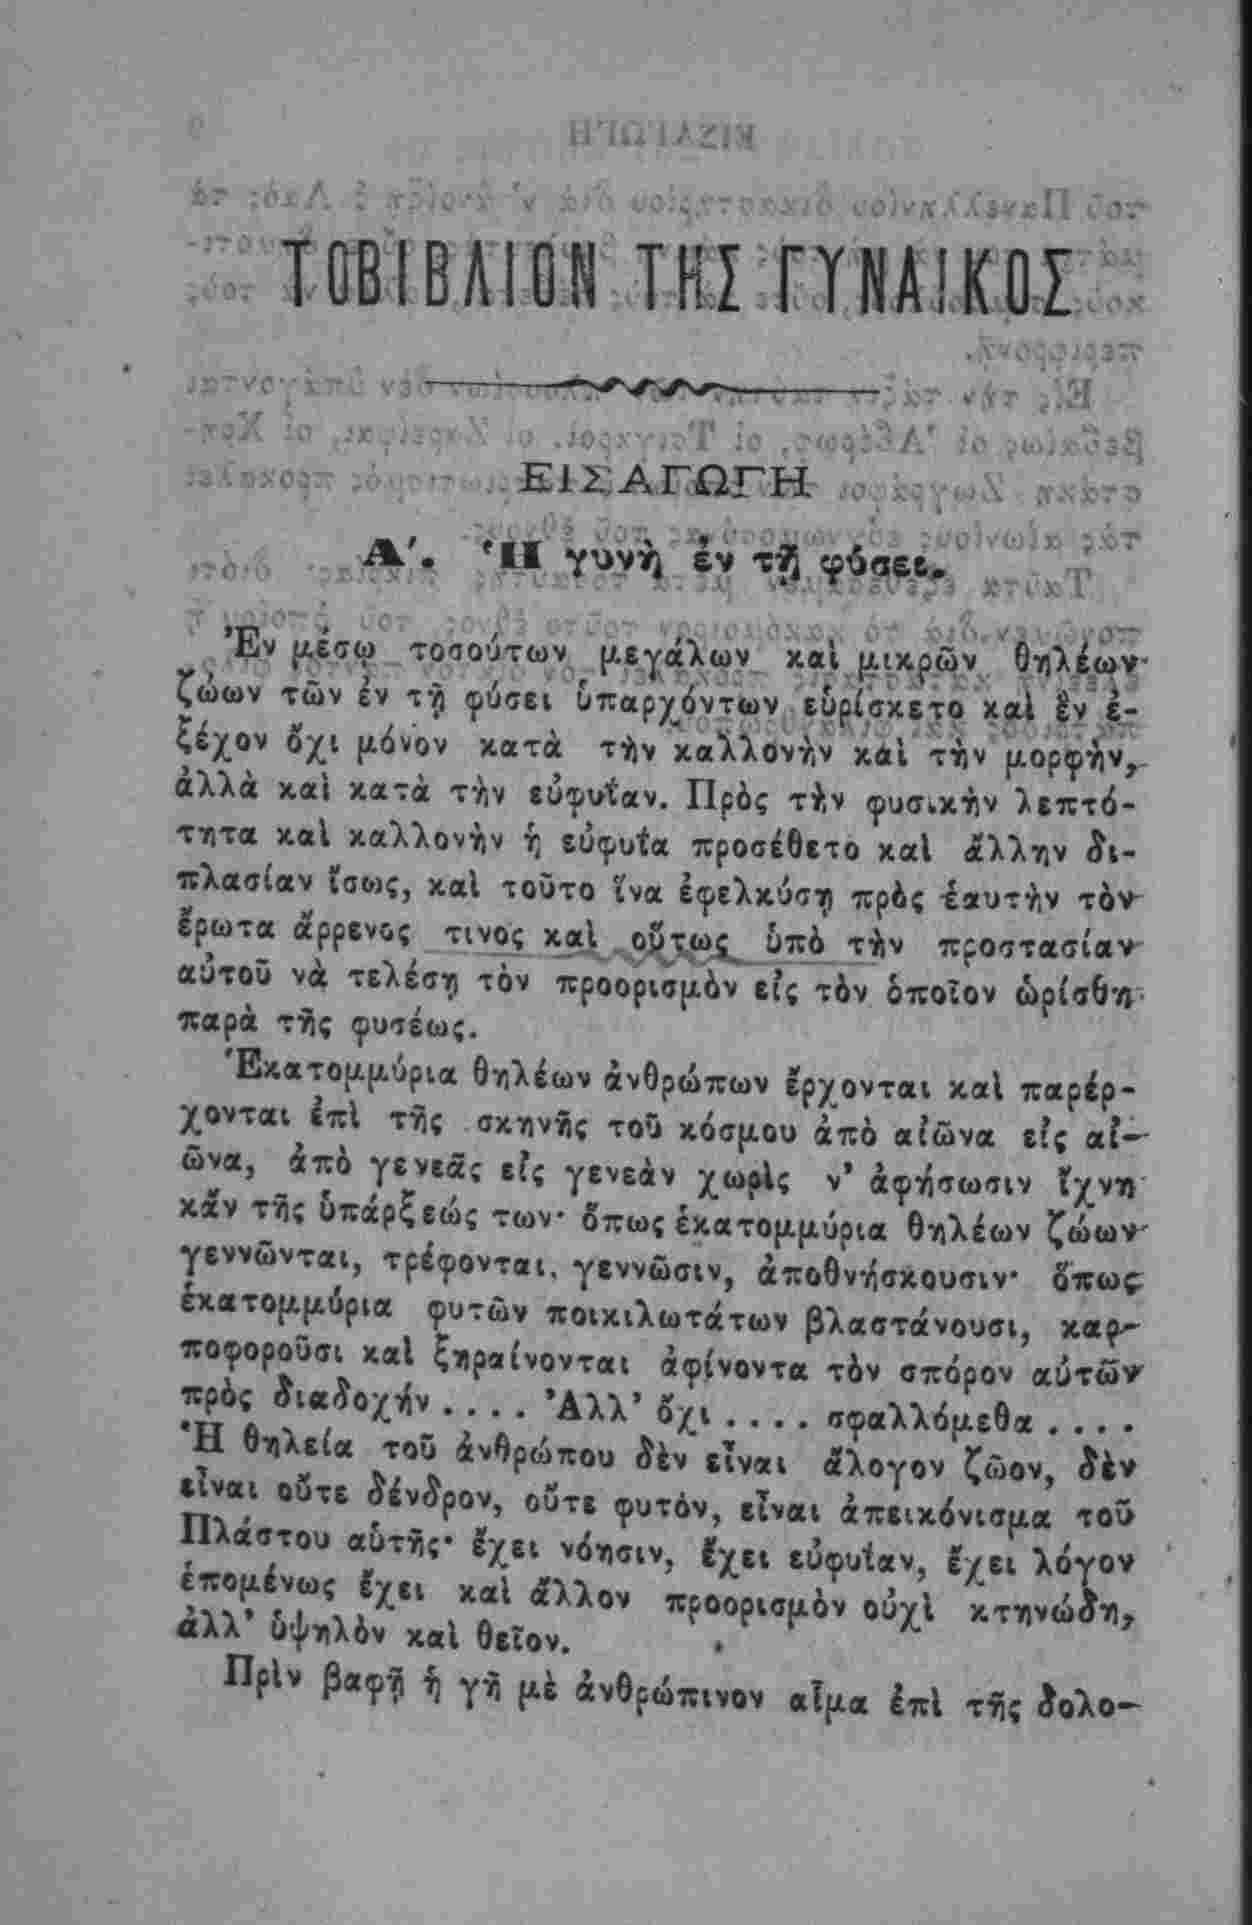 ΤΟ ΒΙΒΛΙΟΝ ΤΗΣ ΓΥΝΑΙΚΟΣ
ΕΙΣΑΓΩΓΗ
Α′. Ἡ γυνὴ ἐν τῇ φύσει.
Ἐν μέσῳ τοσούτων μεγάλων καὶ μικρῶν θηλέων
ζώων τῶν ἐν τῇ φύσει ὑπαρχόντων εὑρίσκετο καὶ ἓν ἐ-
ξέχον ὄχι μόνον κατὰ τὴν καλλονὴν καὶ τὴν μορφὴν,
ἀλλὰ καὶ κατὰ τὴν εὐφυΐαν. Πρὸς τὴν φυσικὴν λεπτό-
τητα καὶ καλλονὴν ἡ εὐφυΐα προσέθετο καὶ ἄλλην δι-
πλασίαν ἴσως, καὶ τοῦτο ἵνα ἐφελκύσῃ πρὸς ἑαυτὴν τὸν
ἔρωτα ἄρρενος τινος καὶ οὕτως ὑπὸ τὴν προστασίαν
αὐτοῦ νὰ τελέσῃ τὸν προορισμὸν εἰς τὸν ὁποῖον ὡρίσθη
παρὰ τῆς φυσέως.
Ἑκατομμύρια θηλέων ἀνθρώπων ἔρχονται καὶ παρέρ-
χονται ἐπὶ τῆς σκηνῆς τοῦ κόσμου ἀπὸ αἰῶνα εἰς αἰ-
ῶνα, ἀπὸ γενεᾶς εἰς γενεὰν χωρὶς ν’ ἀφήσωσιν ἴχνη
κἂν τῆς ὑπάρξεώς των· ὅπως ἑκατομμύρια θηλέων ζώων
γεννῶνται, τρέφονται, γεννῶσιν, ἀποθνήσκουσιν· ὅπως
ἑκατομμύρια φυτῶν ποικιλωτάτων βλαστάνουσι, καρ-
ποφοροῦσι καὶ ξηραίνονται ἀφίνοντα τὸν σπόρον αὐτῶν
πρὸς διαδοχήν .... Ἀλλ’ ὄχι .... σφαλλόμεθα ....
Ἡ θηλεία τοῦ ἀνθρώπου δὲν εἶναι ἄλογον ζῶον, δὲν
εἶναι οὔτε δένδρον, οὔτε φυτόν, εἶναι ἀπεικόνισμα τοῦ
Πλάστου αὐτῆς· ἔχει νόησιν, ἔχει εὐφυΐαν, ἔχει λόγον
ἑπομένως ἔχει καὶ ἄλλον προορισμὸν οὐχὶ κτηνώδη,
ἀλλ’ ὑψηλὸν καὶ θεῖον.
Πρὶν βαφῇ ἡ γῆ μὲ ἀνθρώπινον αἷμα ἐπὶ τῆς δολο-